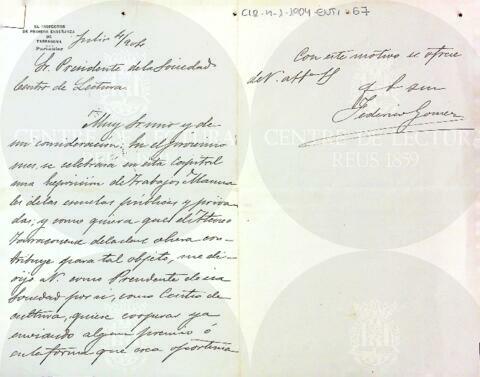 EL INSPECTOR
DE PRIMERA ENSEÑANZA
DE
TARRAGONA
Particular
Julio 4/904
Sr. Presidente de la Sociedad
Centro de Lectura.
Muy Sr mio y de
mi consideracion: En el proximo
mes, se celebrará en esta capital
una Exposicion de Trabajos Manua
les de las escuelas publicas y priva
das; y como quiera que el Ateneo
Tarraconense de la clase obrera con-
tribuye para tal objeto, me di-
rijo a V. como Presidente de esa
Sociedad por si, como Centro de
cultura, quiere cooperar ya
enviando algun premio ó
en la forma que crea oportuna
CLR-4-1-1904-ENT1-67
Con este motivo se ofrece
de V. affmo SS
q b sm
Federico Gomez
CENTRE DE LECTURA
REUS 1859
CENTRE DE LECTUR
REUS 1859